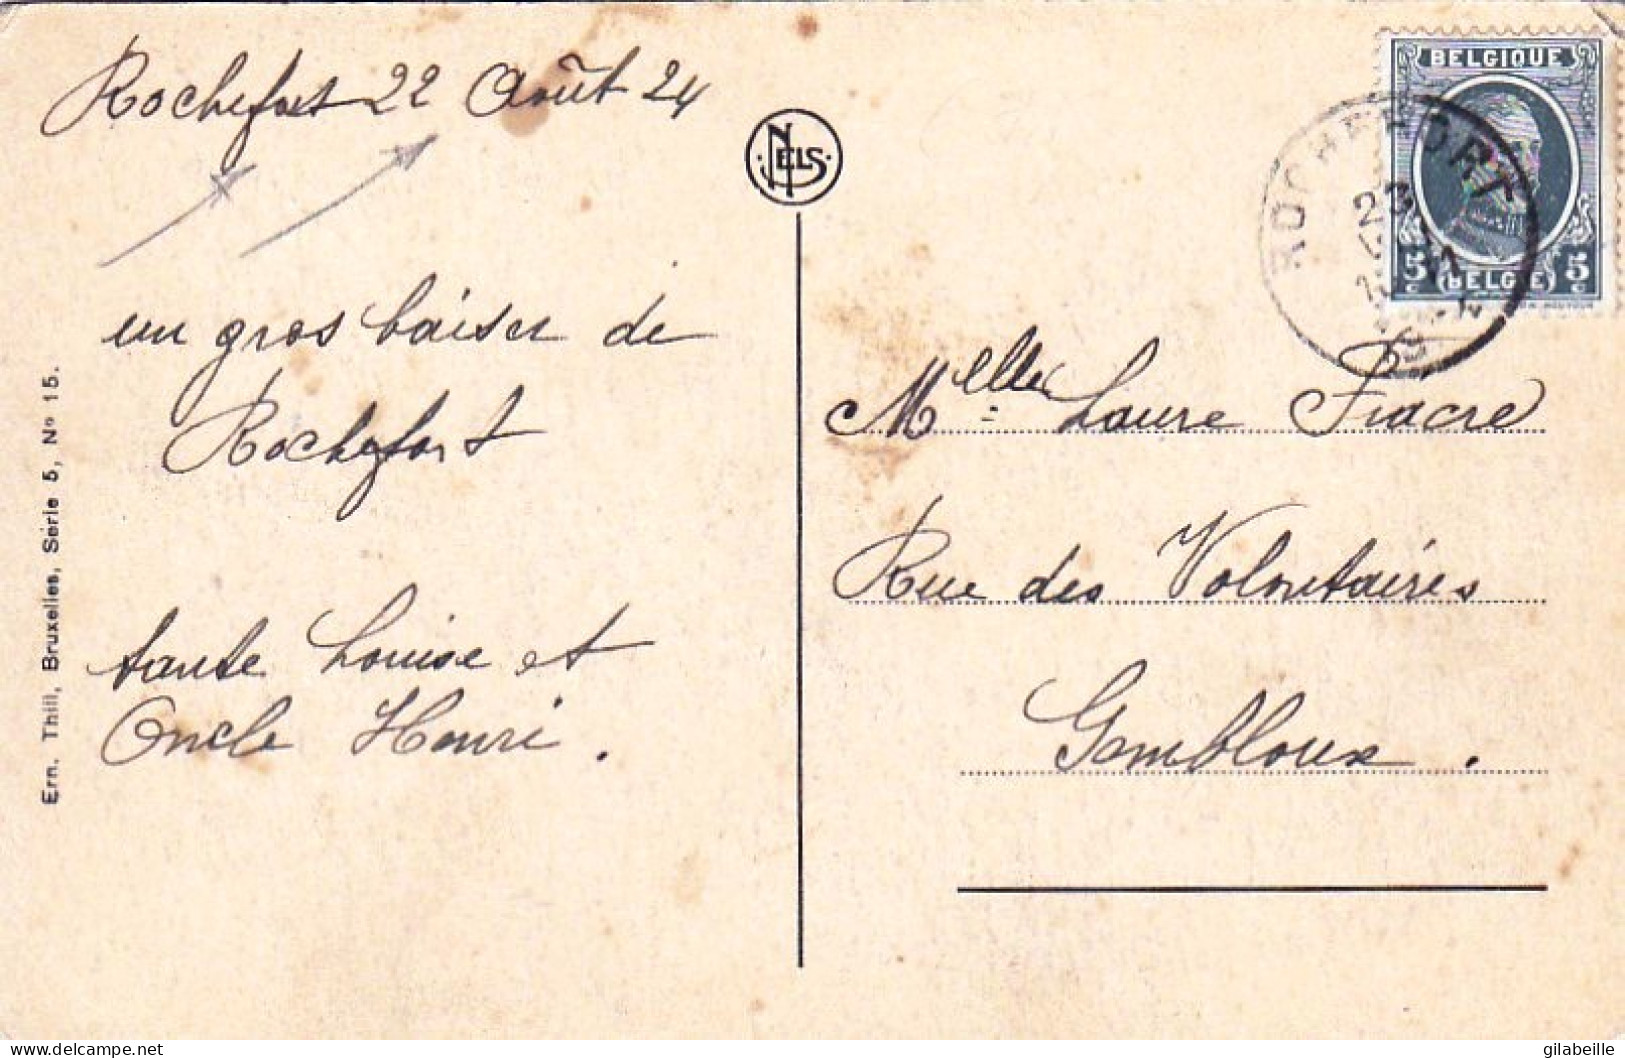 Rochefort 22 Août 24
un gros baiser de
Rochefort
tante Louise et
Oncle Henri.
Ern. Thill, Bruxelles, Série 5, N° 15.
NELS
BELGIQUE
5c (BELGIË) 5c
ROCHEFORT
23
Melle Laure Fiacre
Rue des Volontaires
Gembloux.
delcampe.net
gilabeille